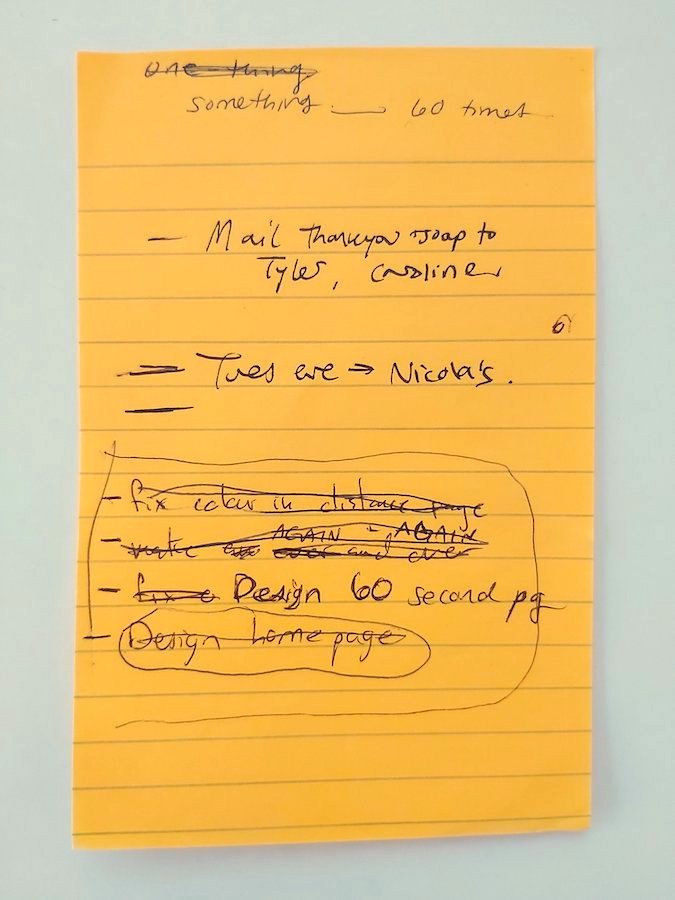 one thing
something — 60 times
- Mail Thankyou + soap to
Tyler, Caroline
6
= Tues eve → Nicola's.
-
- fix colour in distance page
AGAIN - AGAIN
- make over and over
- fix Design 60 second pg
- Design home page